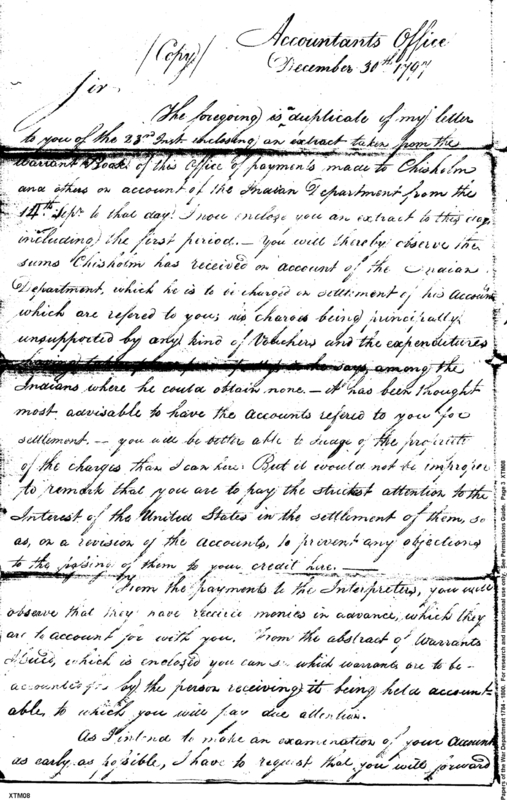 (Copy) Accountants Office
December 30th 1797
Sir
The foregoing is duplicate of my letter
to you of the 23rd Inst. enclosing an extract taken from the
Warrant Book of this Office of payments made to Chisholm
and others on account of the Indian Department from the
14th Sepr to that day. I now enclose you an extract to this day
including the first period. — You will thereby observe the
sums Chisholm has received on account of the Indian
Department, which he is to be charged on settlement of his Accounts
which are refered to you; his charges being principally
unsupported by any kind of Vouchers and the expenditures
having he says, among the
Indians where he could obtain none. — It has been thought
most advisable to have the accounts refered to you for
settlement. — you will be better able to Judge of the propriety
of the charges than I can here. But it would not be improper
to remark that you are to pay the strictest attention to the
Interest of the United States in the settlement of them, so
as, on a revision of the accounts, to prevent any objections
to the passing of them to your credit here. —
From the payments to the Interpreters, you will
observe that they have receive monies in advance, which they
are to account for with you. From the abstract of Warrants
which is enclosed you can see which warrants are to be
accounted for by the person receiving it being held account-
able, to which you will pay due attention.
As I intend to make an examination of your Accounts
as early as possible, I have to request that you will forward
XTM08
Papers of the War Department 1784 - 1800. For research and instructional use only. See Permissions Guide. Page 3 XTM08